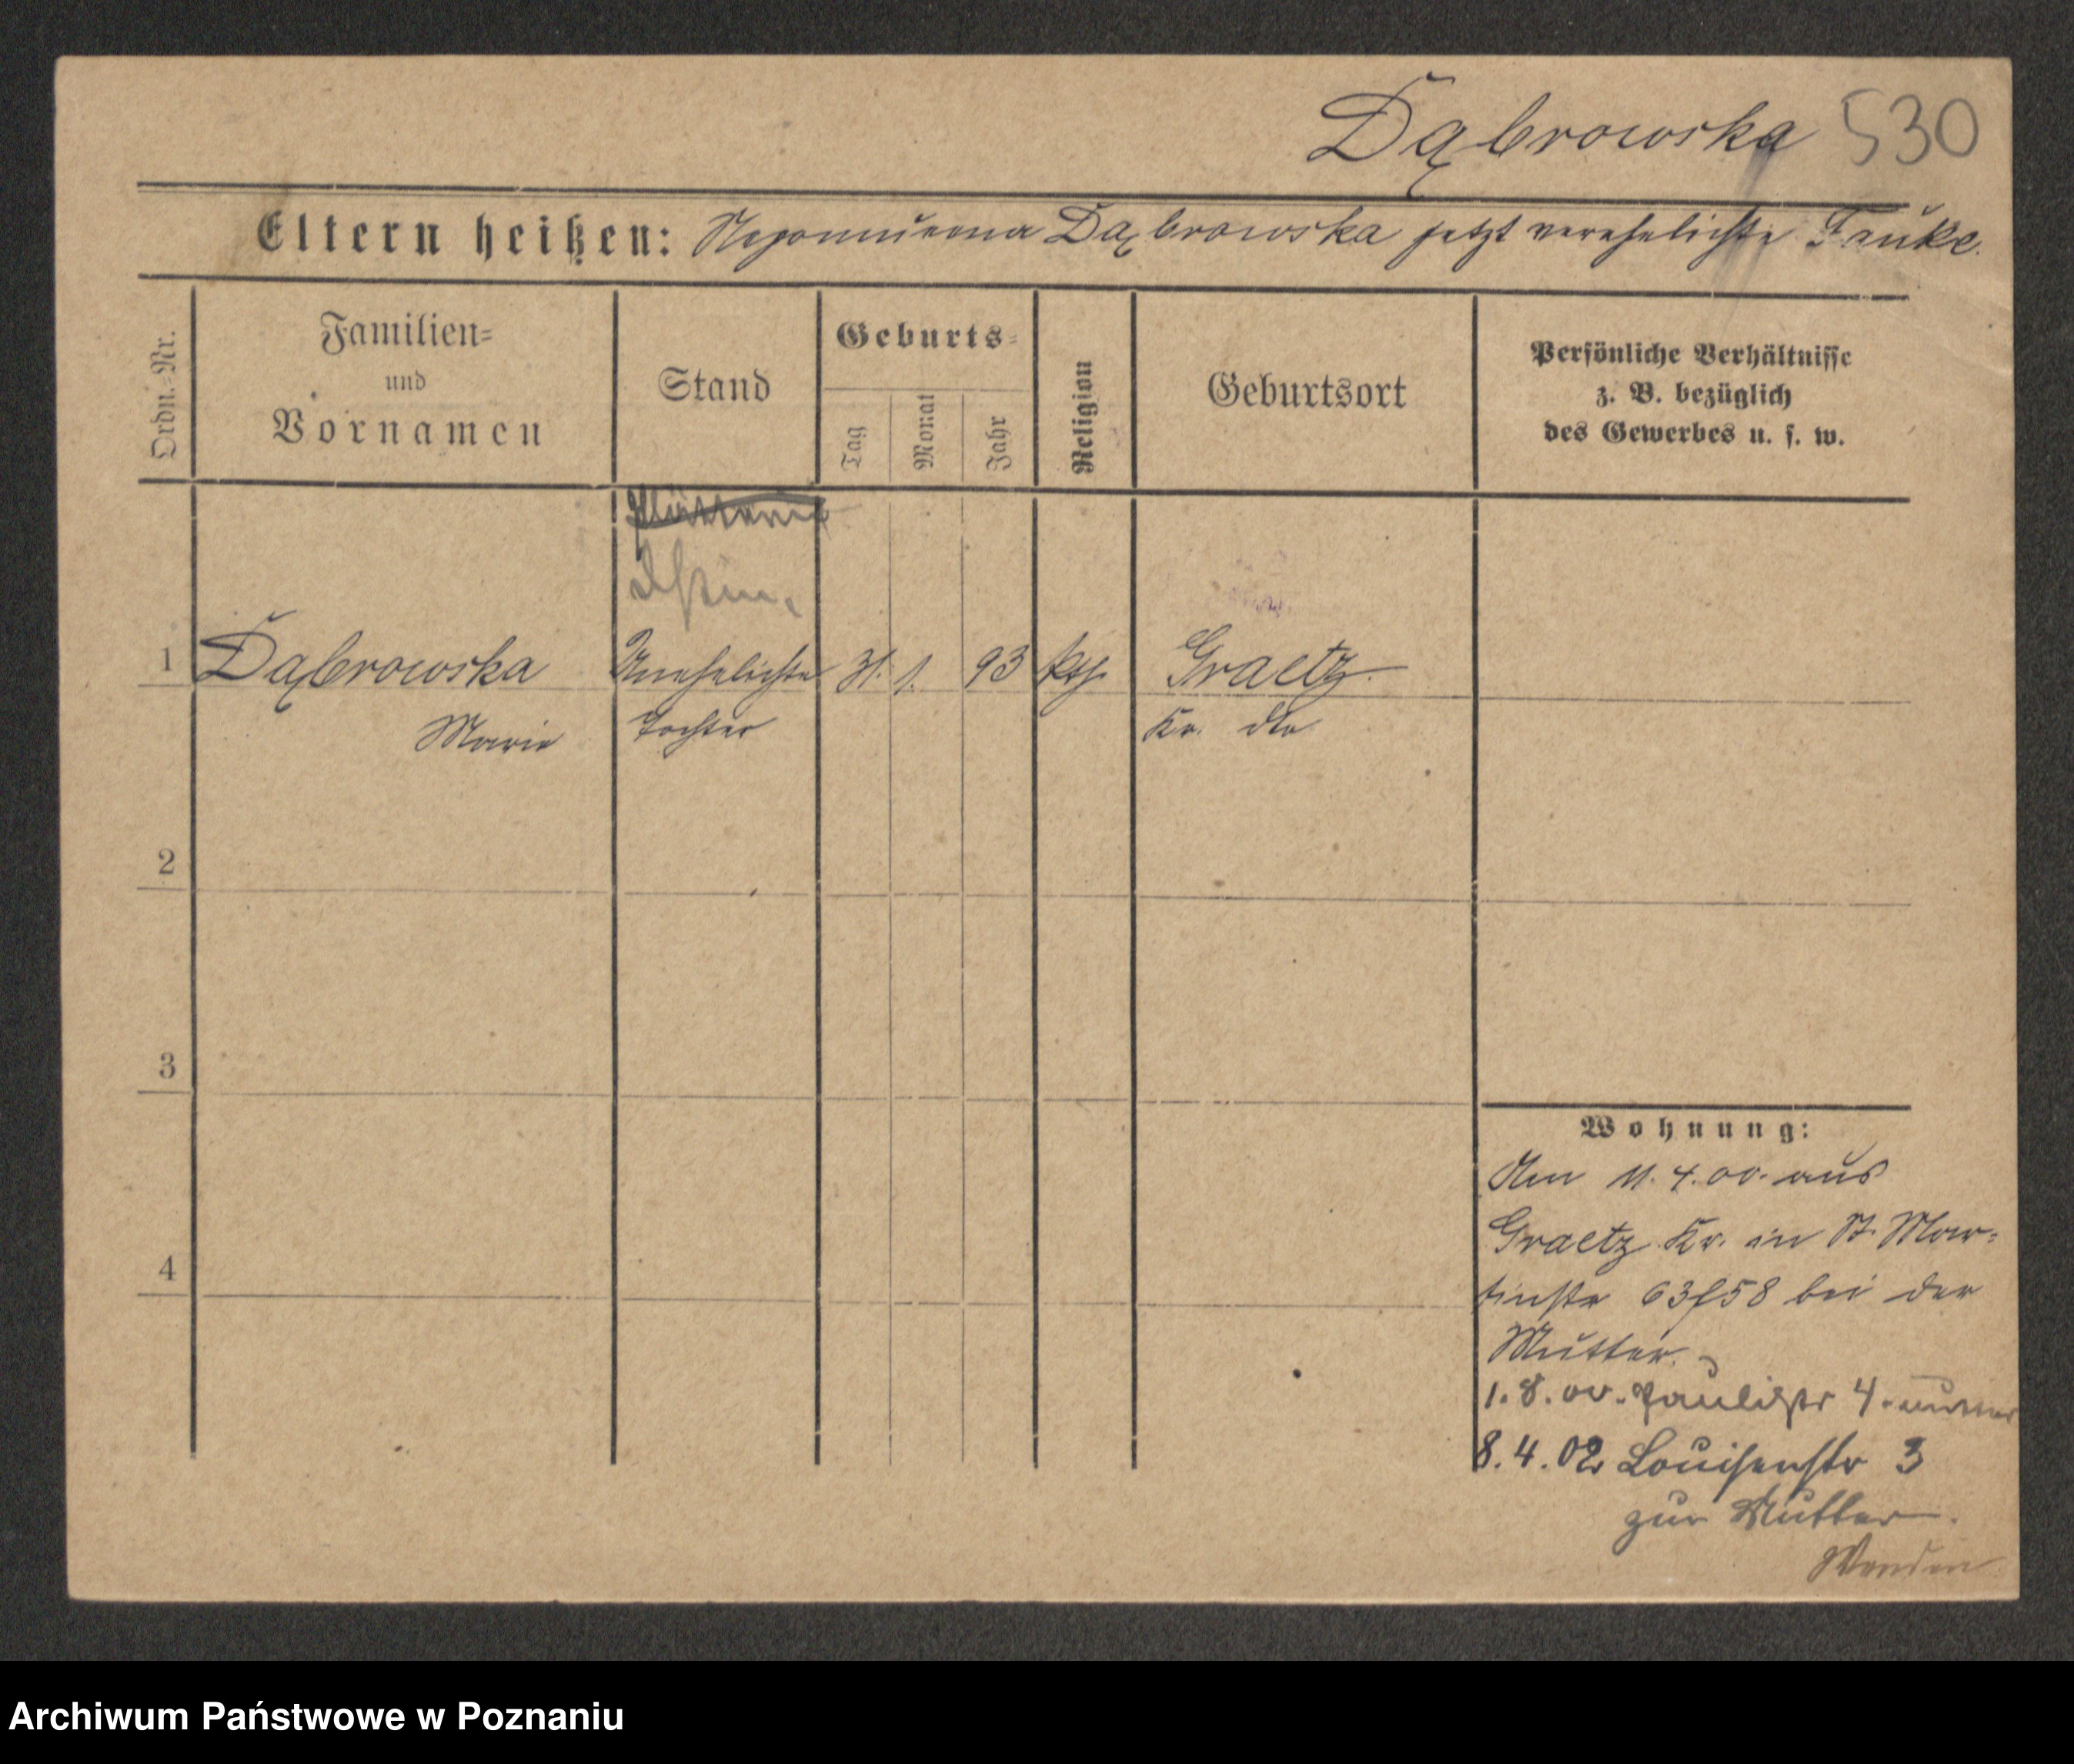 Dąbrowska 530
Eltern heißen: Nepomucena Dąbrowska jetzt verehelichte Fauke.
Ordn.=Nr.
Familien=
und
Vornamen
Stand
Geburts=
Tag
Monat
Jahr
Religion
Geburtsort
Persönliche Verhältnisse
z. B. bezüglich
des Gewerbes u. s. w.
1 Dąbrowska Unehelichte 31. 1. 93 kth. Graetz.
Marie Tochter Kr. dto
2
3
4
Wohnung:
Am 11. 4. 00. aus
Graetz Kr. in St. Mar=
tinstr 63/58 bei der
Mutter.
1. 8. 00. Paulistr 4. Mutter
8. 4. 02 Louisenstr 3
zur Mutter.
Wenden
Archiwum Państwowe w Poznaniu